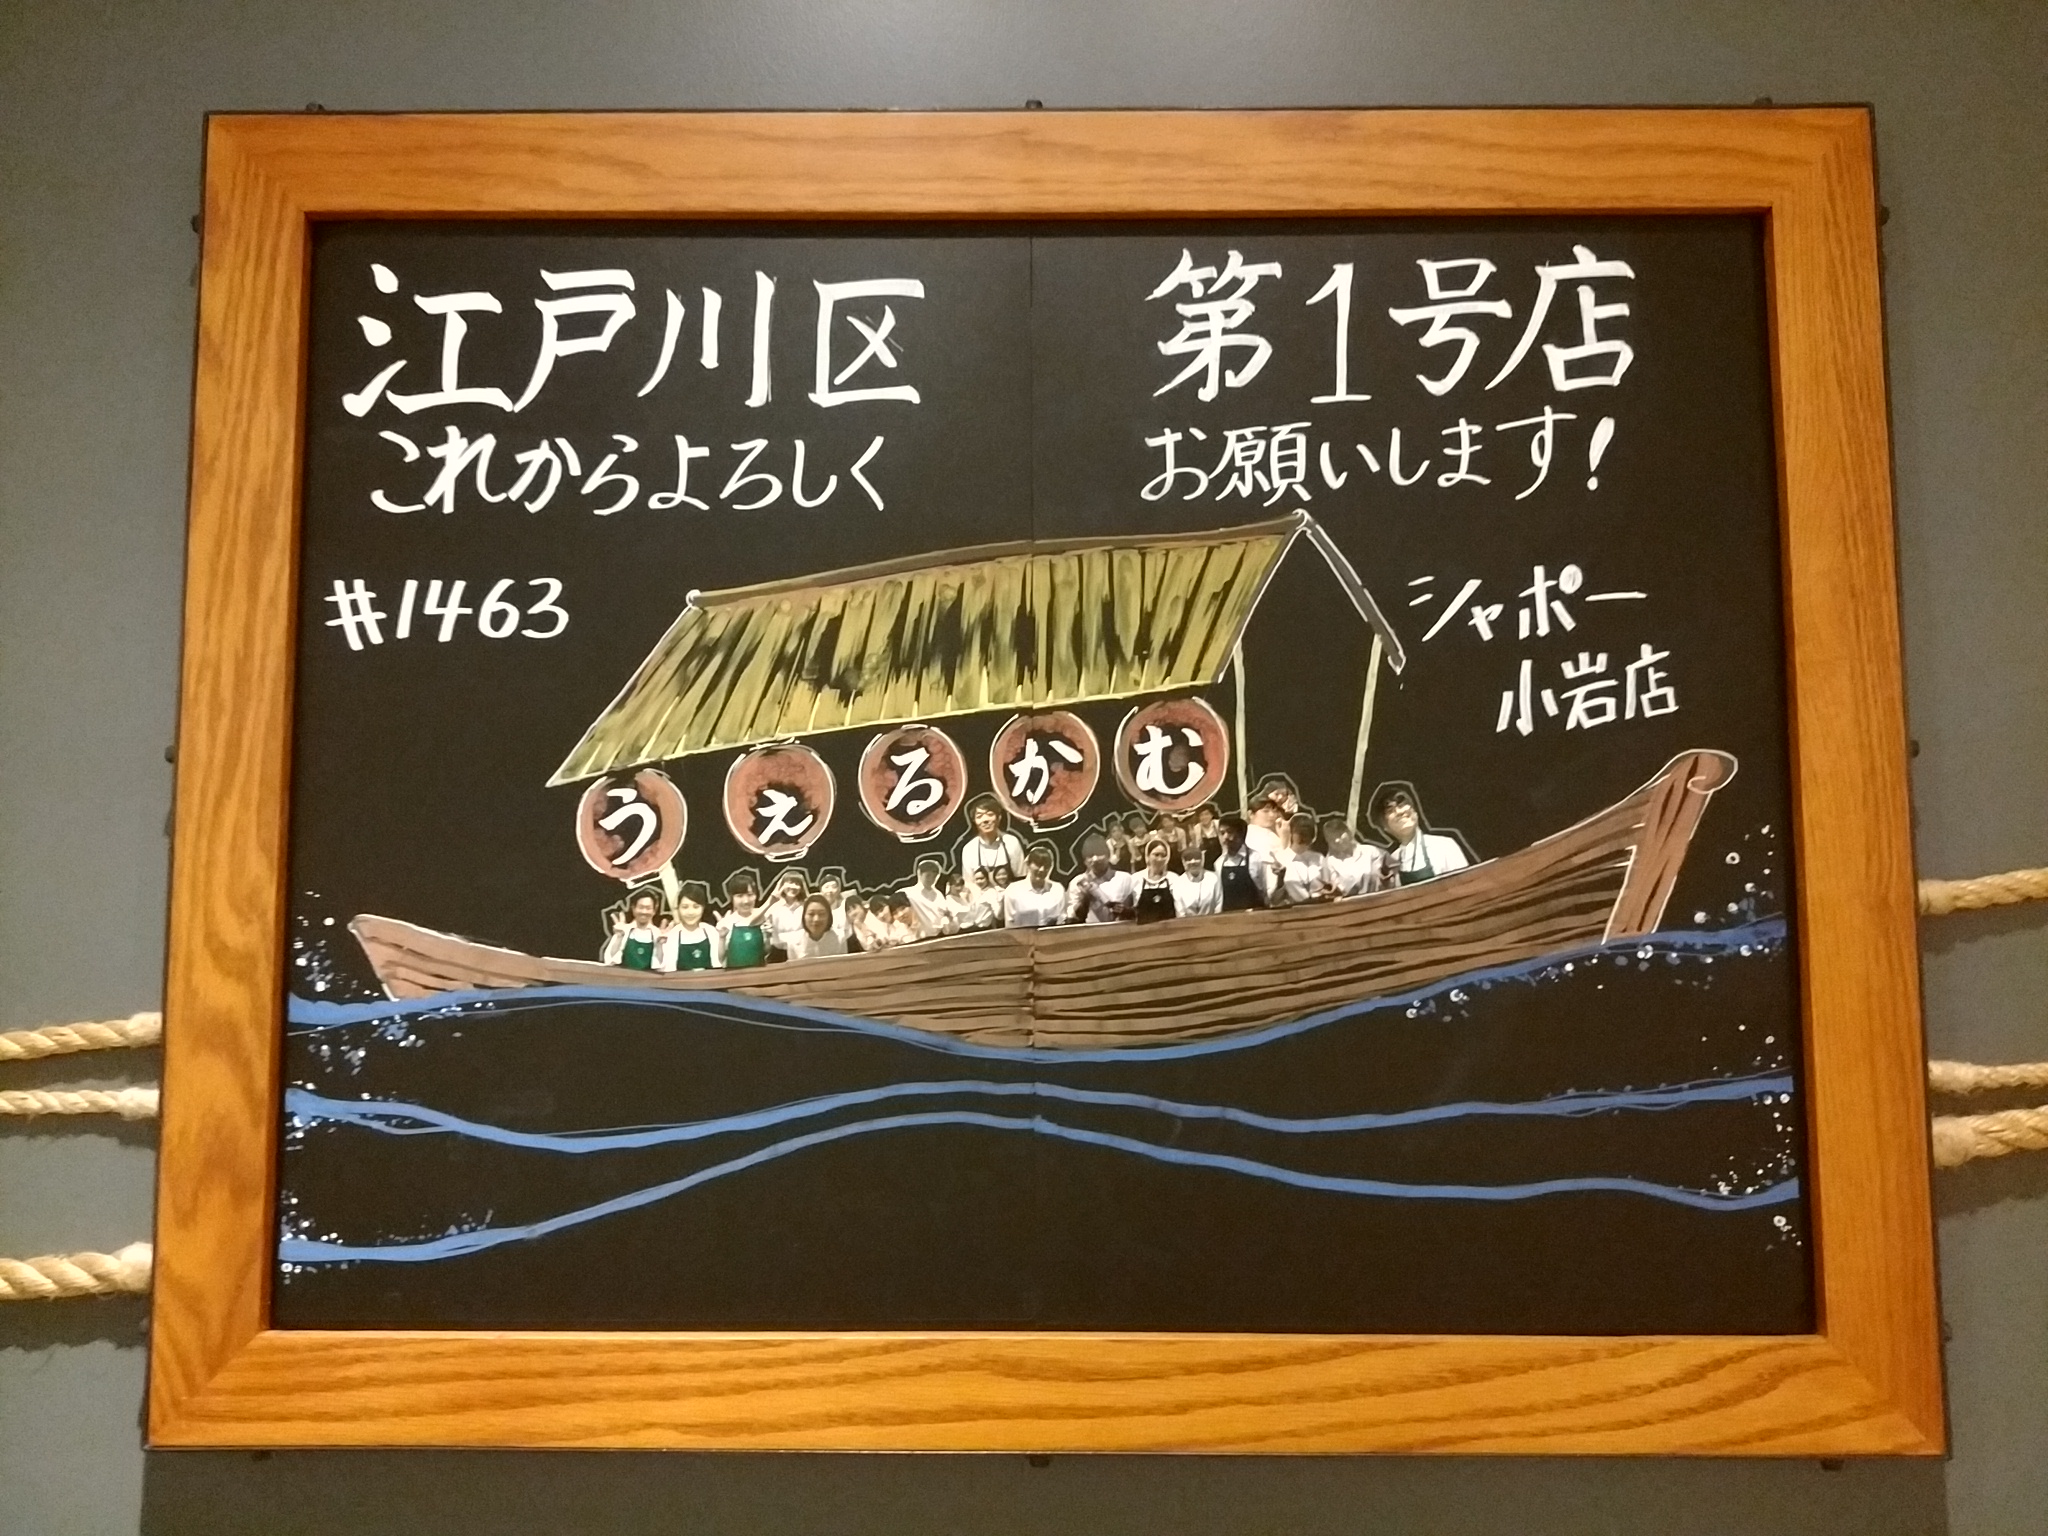 江戸川区 第1号店
これからよろしく お願いします!
#1463
シャポー
小岩店
うぇるかむ